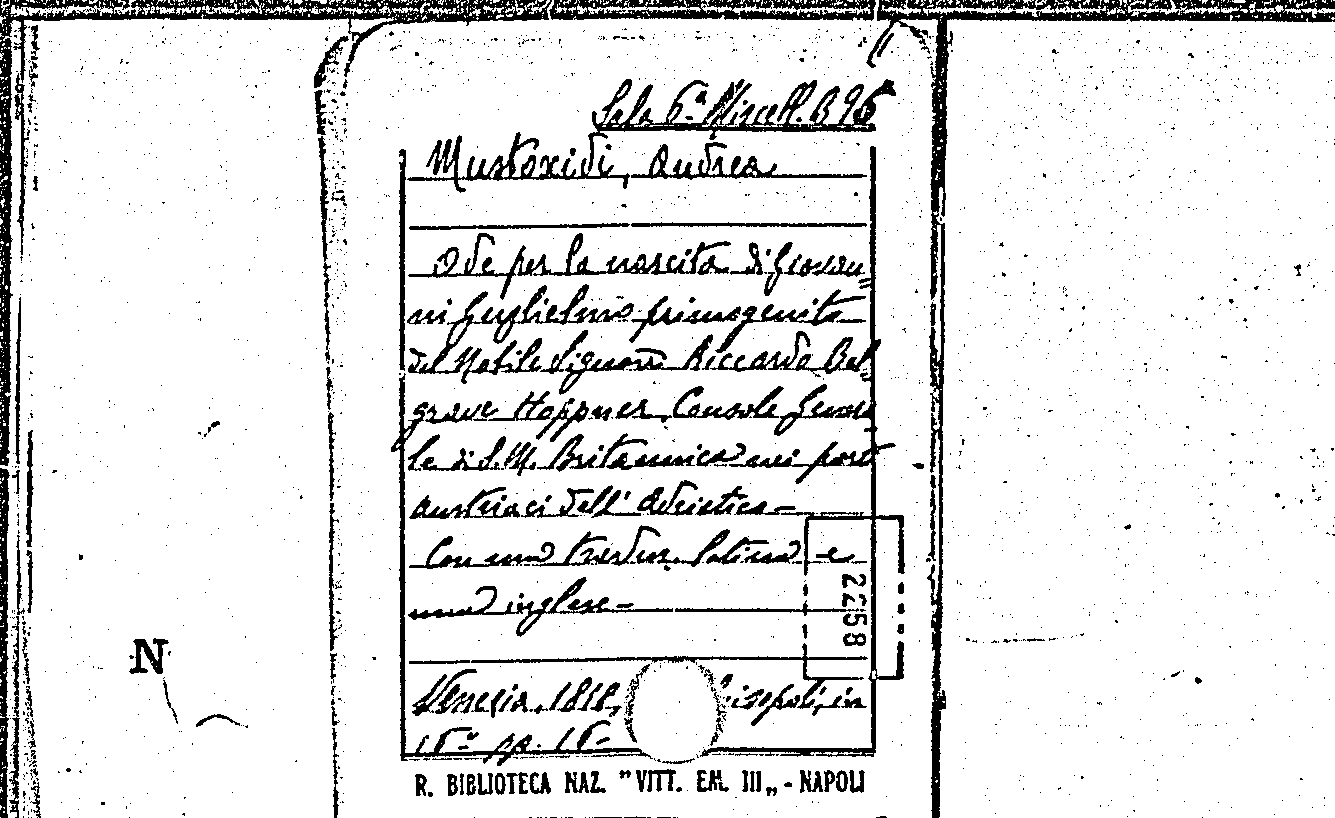 Sala 6ª Miscell. B 96
Mustoxidi, Andrea
Ode per la nascita di Giovan
ni Guglielmo primogenito
del Nobile Signore Riccardo Bel
grave Hoppner Console Genera
le di S. M. Britannica nei porti
austriaci dell' Adriatico -
Con una traduz. latina e
una inglese -
2258
Venezia, 1818, in
16º pp. 16 -
R. BIBLIOTECA NAZ. "VITT. EM. III„ - NAPOLI
N